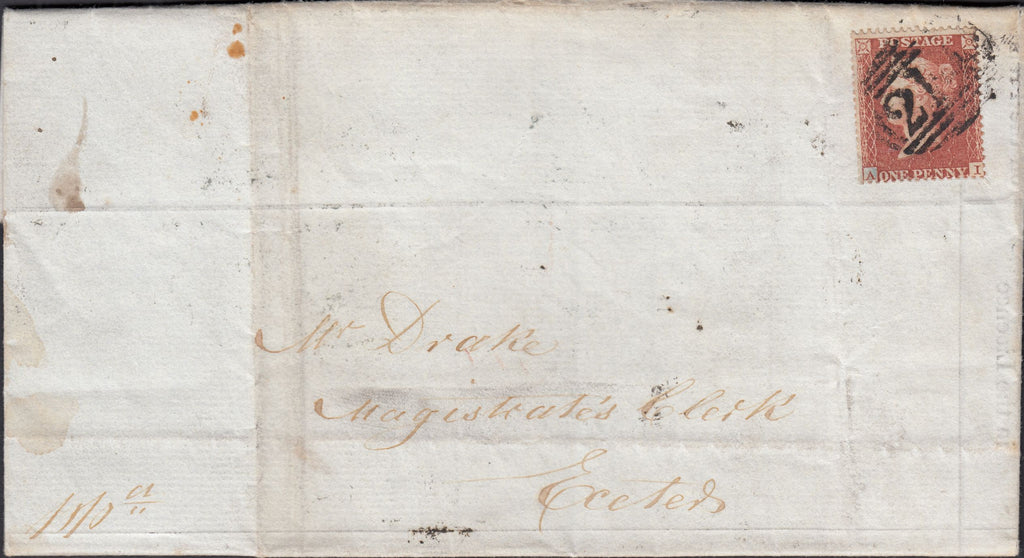 POSTAGE
A I
ONE PENNY
Mr Drake
Magistrate's Clerk
Exeter